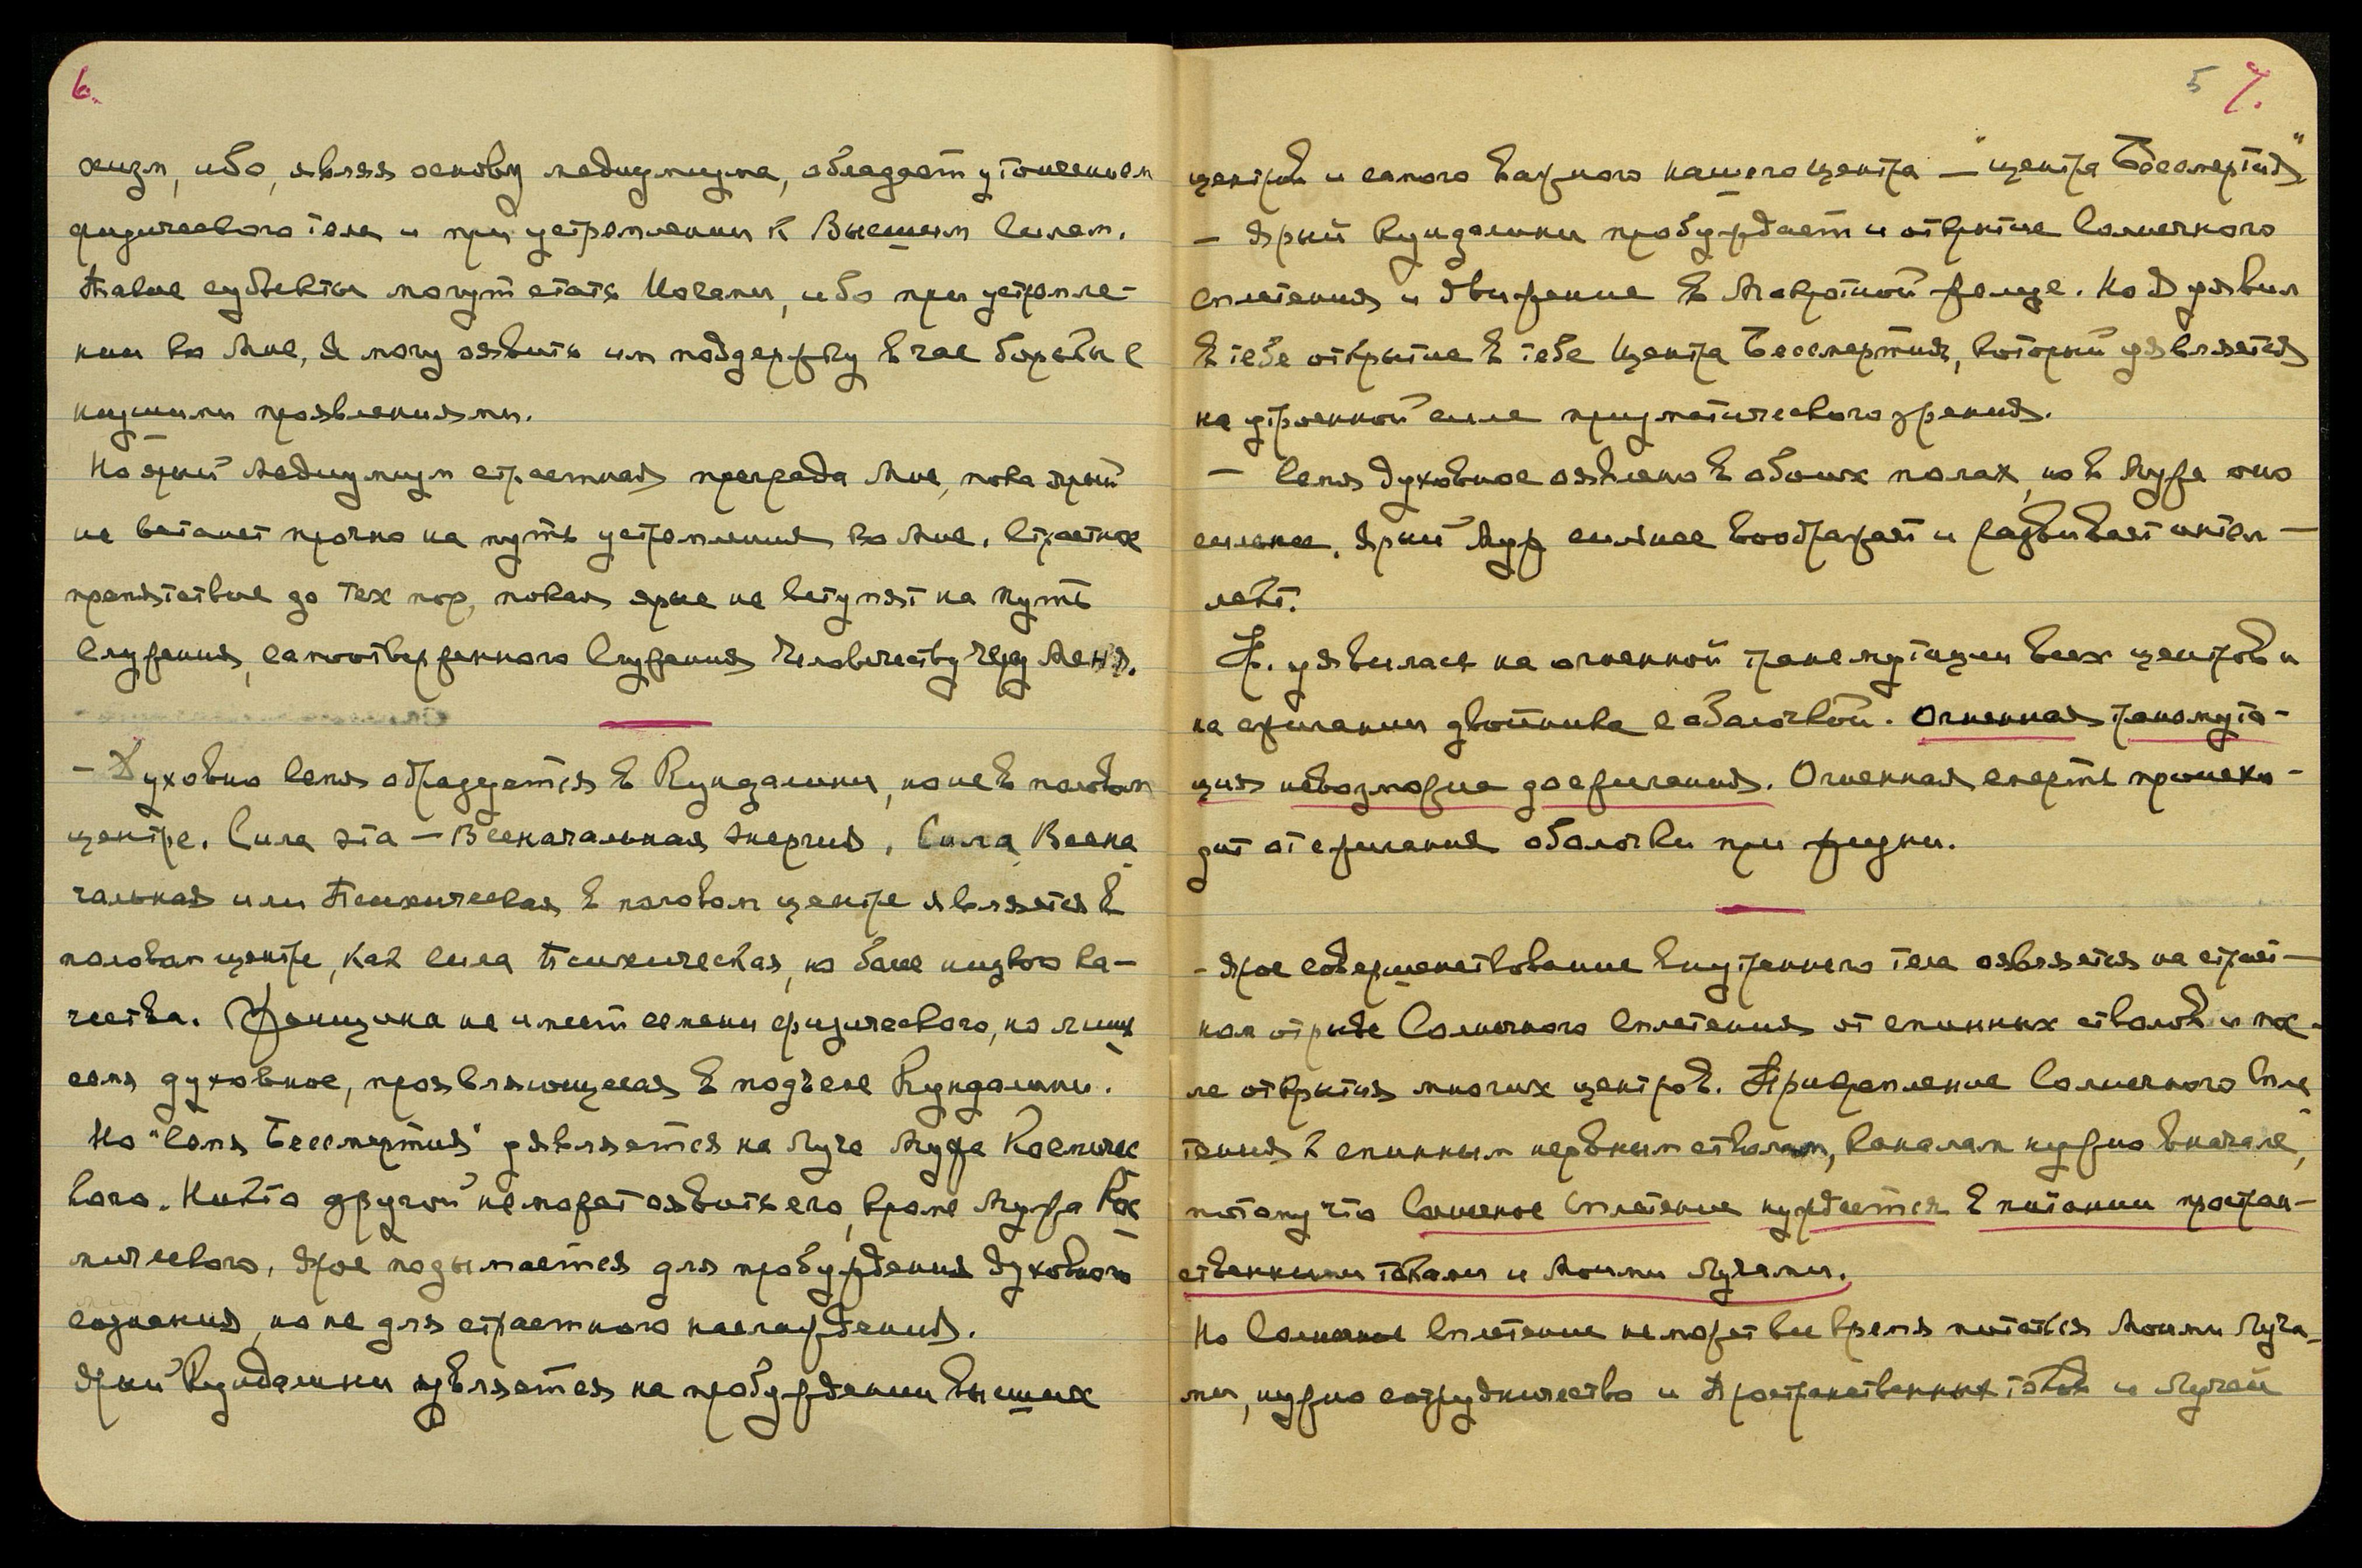 6.
охизм, ибо, являя основу медиумизма, обладает утончением
физического тела и при устремлении к Высшим Силам.
Такие субъекты могут стать Иосами, ибо при устремле-
нии ко Мне, Я могу оявить им поддержку в час борьбы с
низшими проявлениями.
Но ярый Медиумизм страстная преграда Мне, пока ярый
не встанет прочно на путь устремления ко Мне. Страстное
препятствие до тех пор, покая ярые не вступят на путь
Служения, самоотверженного Служения Человечеству через Меня.
– Духовно Семя образуется в Кундалини, но не в половом
центре. Сила эта – Всеначальная Энергия. Сила Всена-
чальная или Психическая в половом центре является в
половом центре, как сила Психическая, но более низкого ка-
чества. Женщина не имеет семени физического, но лишь
семя духовное, проявляющееся в подъеме Кундалини.
Но "Семя Бессмертия" уявляется на Луче Мужа Космичес
кого. Никто другой не может оявить его, кроме Мужа Кос-
мического. Ярое подымается для пробуждения духовного
сознания, но не для страстного наслаждения.
Ярый Кундалини уявляется на пробуждении высших
5 7.
центров и самого важного нашего центра – "центра Бессмертия"
– Ярый Кундалини пробуждает и открытие Солнечного
сплетения и движение в Мокротной железе. Но Я уявил
в тебе открытие в тебе Центра Бессмертия, который уявляется
на утроенной силе призматического зрения.
– Семя духовное оявлено в обоих полах, но в Муже оно
сильнее. Ярый Муж сильнее воображает и развивает интел-
лект.
Ж. уявилась на огненной трансмутации всех центров и
на сжигании двойника с оболочкой. Огненная трансмута-
ция невозможна до сжигания. Огненная смерть происхо-
дит от сжигания оболочки при жизни.
– Ярое совершенствование внутреннего тела оявляется на страст-
ном отрыве Солнечного Сплетения от спинных стволов и пос-
ле открытия многих центров. Прикрепление Солнечного Спле-
тения к спинным нервным стволам, каналам нужно вначале,
потому что Солнечное Сплетение нуждается в питании простран-
ственными токами и Моими Лучами.
Но Солнечное Сплетение не может все время питаться Моими Луча-
ми, нужно сотрудничество и Пространственных токов и Лучей